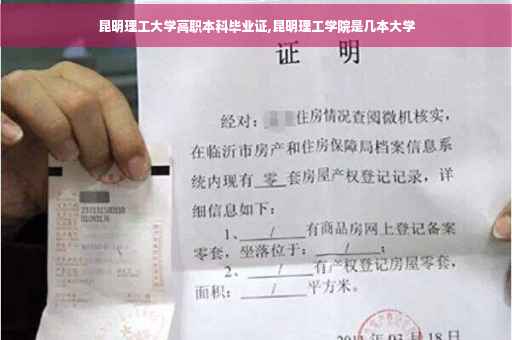 昆明理工大学高职本科毕业证,昆明理工学院是几本大学
证 明
经对: 住房情况查阅微机核实,
在临沂市房产和住房保障局档案信息系
统内现有 零 套房屋产权登记记录,详
细信息如下:
1、 / 有商品房网上登记备案
零套,坐落位于: / ;
2、 / 有产权登记房屋零套,
面积: / 平方米。
03月18日